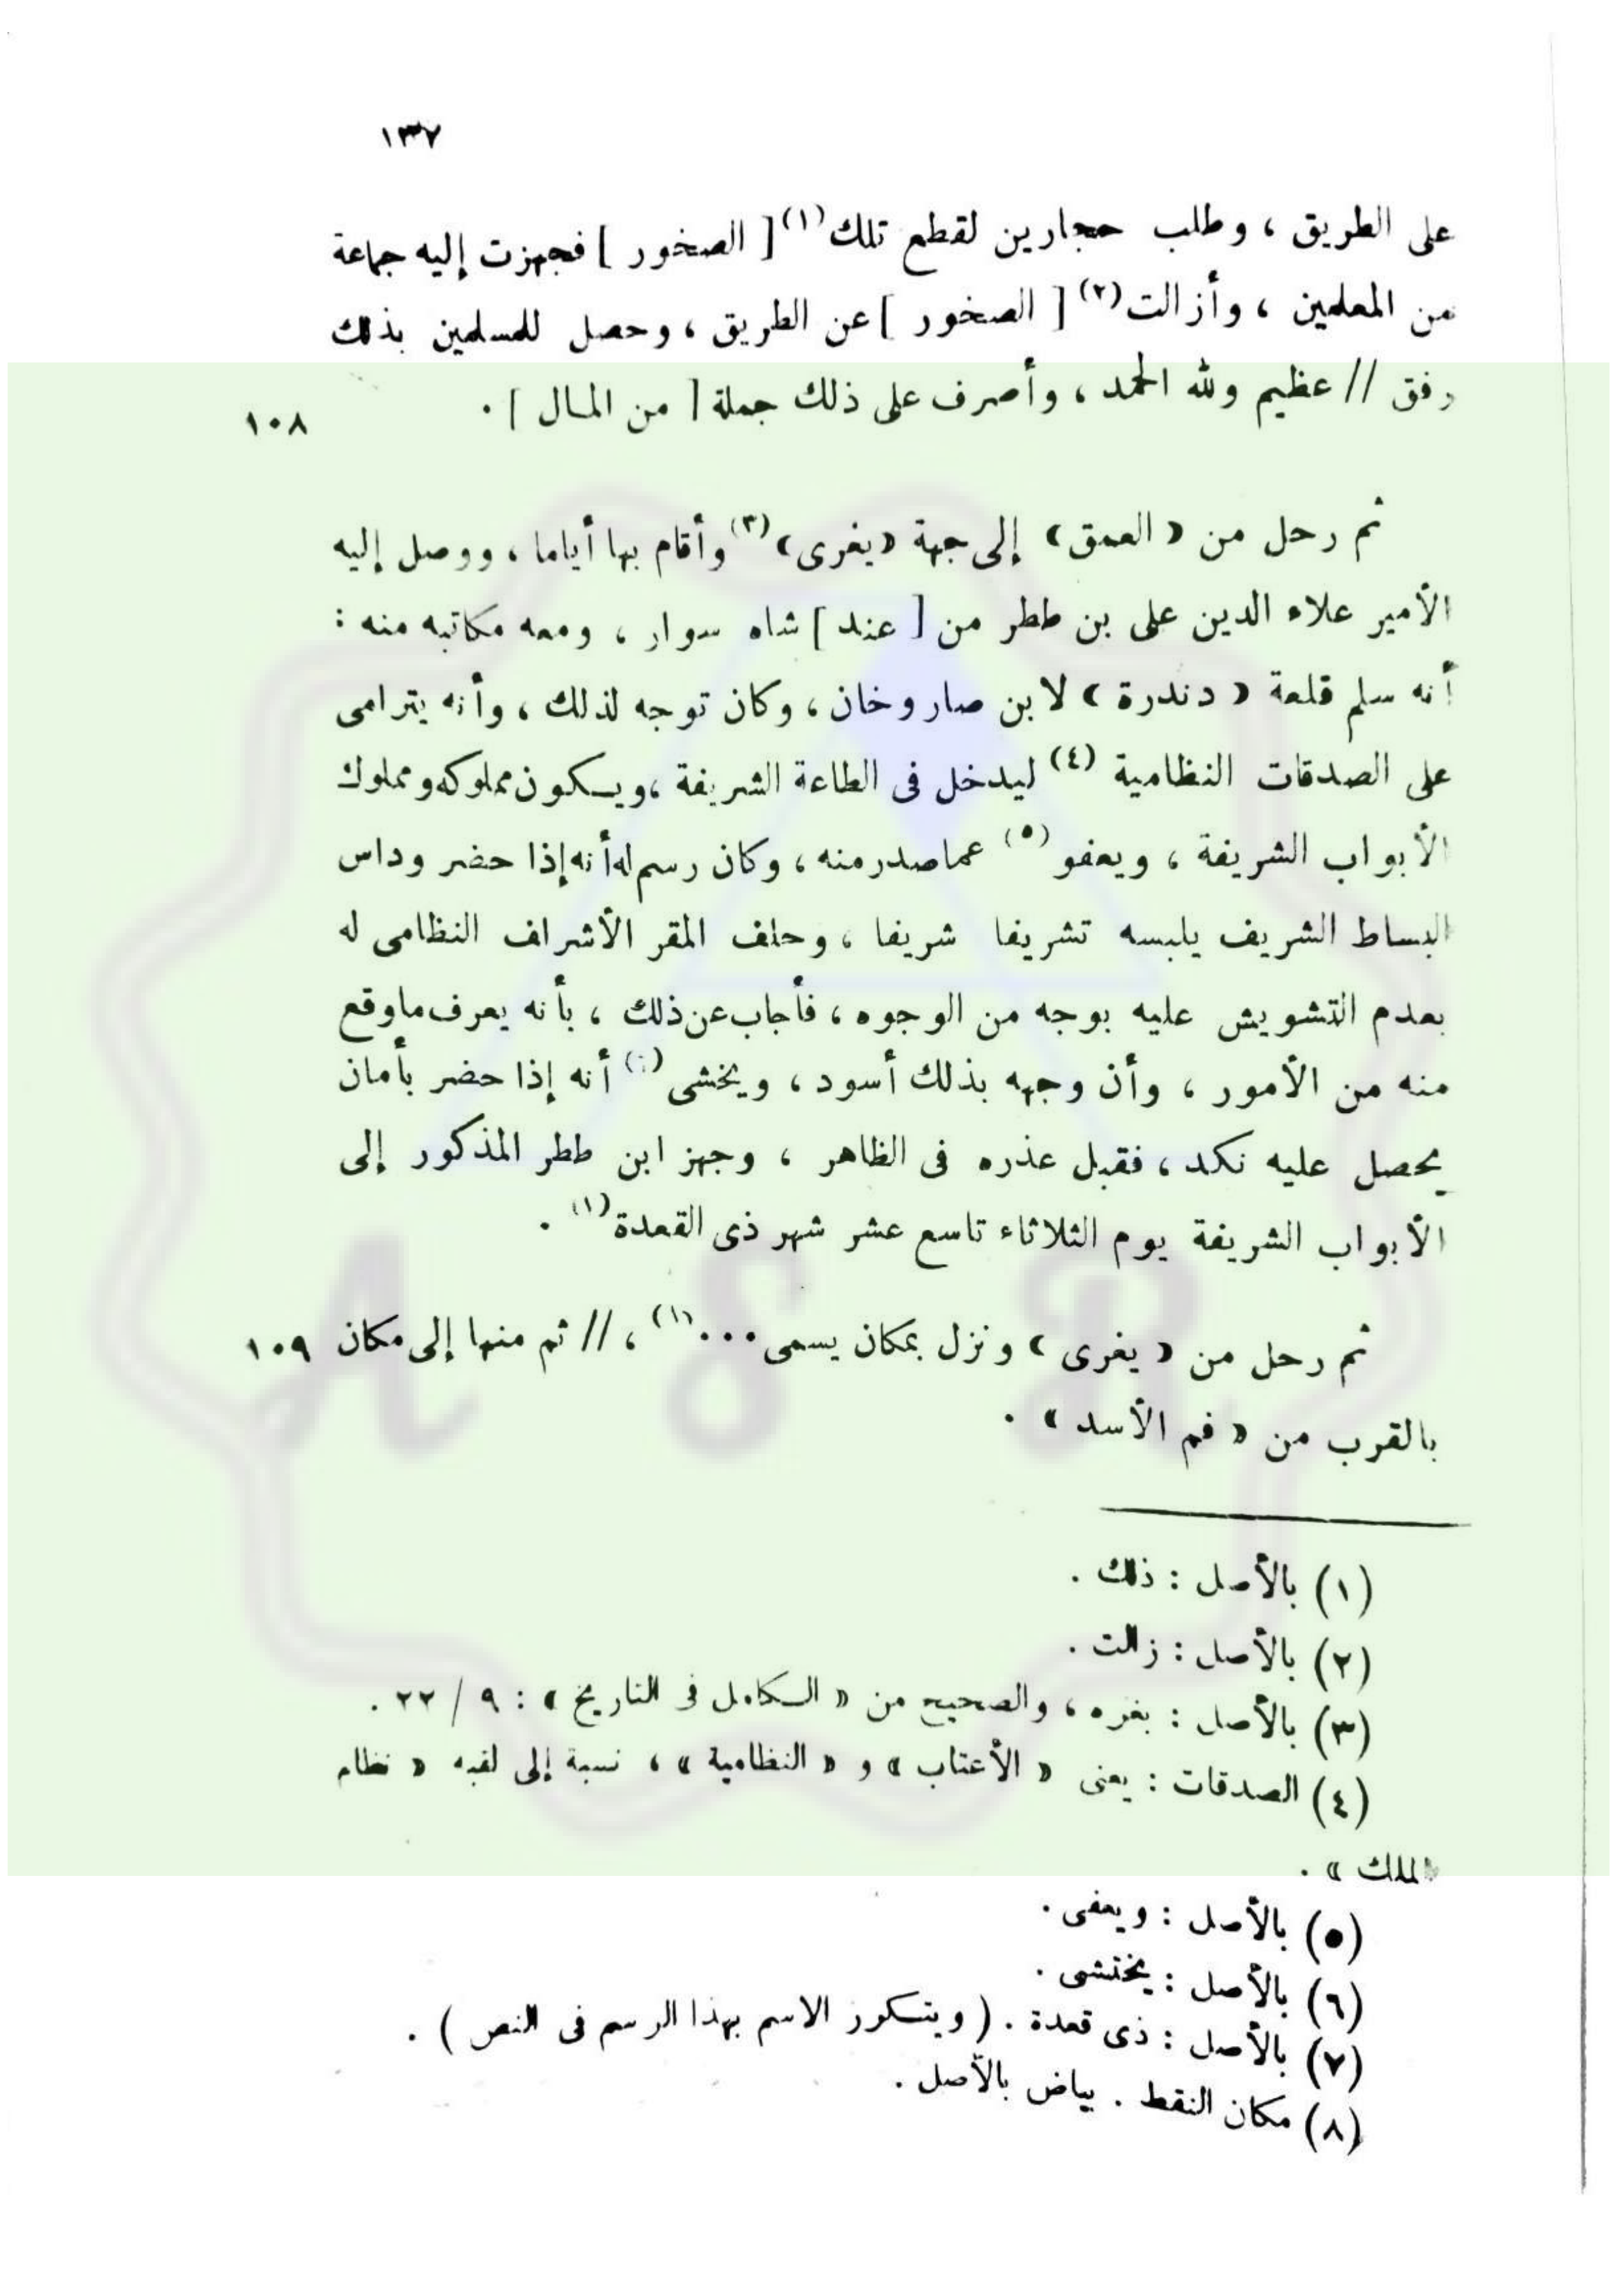 ١٣٧
على الطريق ، وطلب حجارين لقطع تلك (١) [ الصخور ] فجهزت إليه جماعة
من المعلمين ، وأزالت (٢) [ الصخور ] عن الطريق ، وحصل للمسلمين بذلك
رفق // عظيم ولله الحمد ، وأصرف على ذلك جملة [ من المال ] . ١٠٨
ثم رحل من « العمق » إلى جهة « يغرى » (٣) وأقام بها أياما ، ووصل إليه
الأمير علاء الدين على بن ططر من [ عند ] شاه سوار ، ومعه مكاتبه منه :
أنه سلم قلعة « دندرة » لابن صاروخان ، وكان توجه لذلك ، وأنه يترامى
على الصدقات النظامية (٤) ليدخل فى الطاعة الشريفة ، ويكون مملوكه ومملوك
الأبواب الشريفة ، ويعفو (٥) عما صدر منه ، وكان رسم له أنه إذا حضر وداس
البساط الشريف يلبسه تشريفا شريفا ، وحلف المقر الأشراف النظامى له
بعدم التشويش عليه بوجه من الوجوه ، فأجاب عن ذلك ، بأنه يعرف ماوقع
منه من الأمور ، وأن وجهه بذلك أسود ، ويخشى أنه إذا حضر بأمان
يحصل عليه نكد ، فقبل عذره فى الظاهر ، وجهز ابن ططر المذكور إلى
الأبواب الشريفة يوم الثلاثاء تاسع عشر شهر ذى القعدة (١) .
ثم رحل من « يغرى » ونزل بمكان يسمى ... (١) ، // ثم منها إلى مكان ١٠٩
بالقرب من « فم الأسد » .
(١) بالأصل : ذلك .
(٢) بالأصل : زالت .
(٣) بالأصل : بغره ، والصحيح من « الكامل فى التاريخ » : ٩ / ٢٢ .
(٤) الصدقات : يعنى « الأعتاب » و « النظامية » ، نسبة إلى لقبه « نظام
الملك » .
(٥) بالأصل : ويعفى .
(٦) بالأصل : يختشى .
(٧) بالأصل : ذى قعدة . ( ويتكرر الاسم بهذا الرسم فى النص ) .
(٨) مكان النقط . بياض بالأصل .
A S R